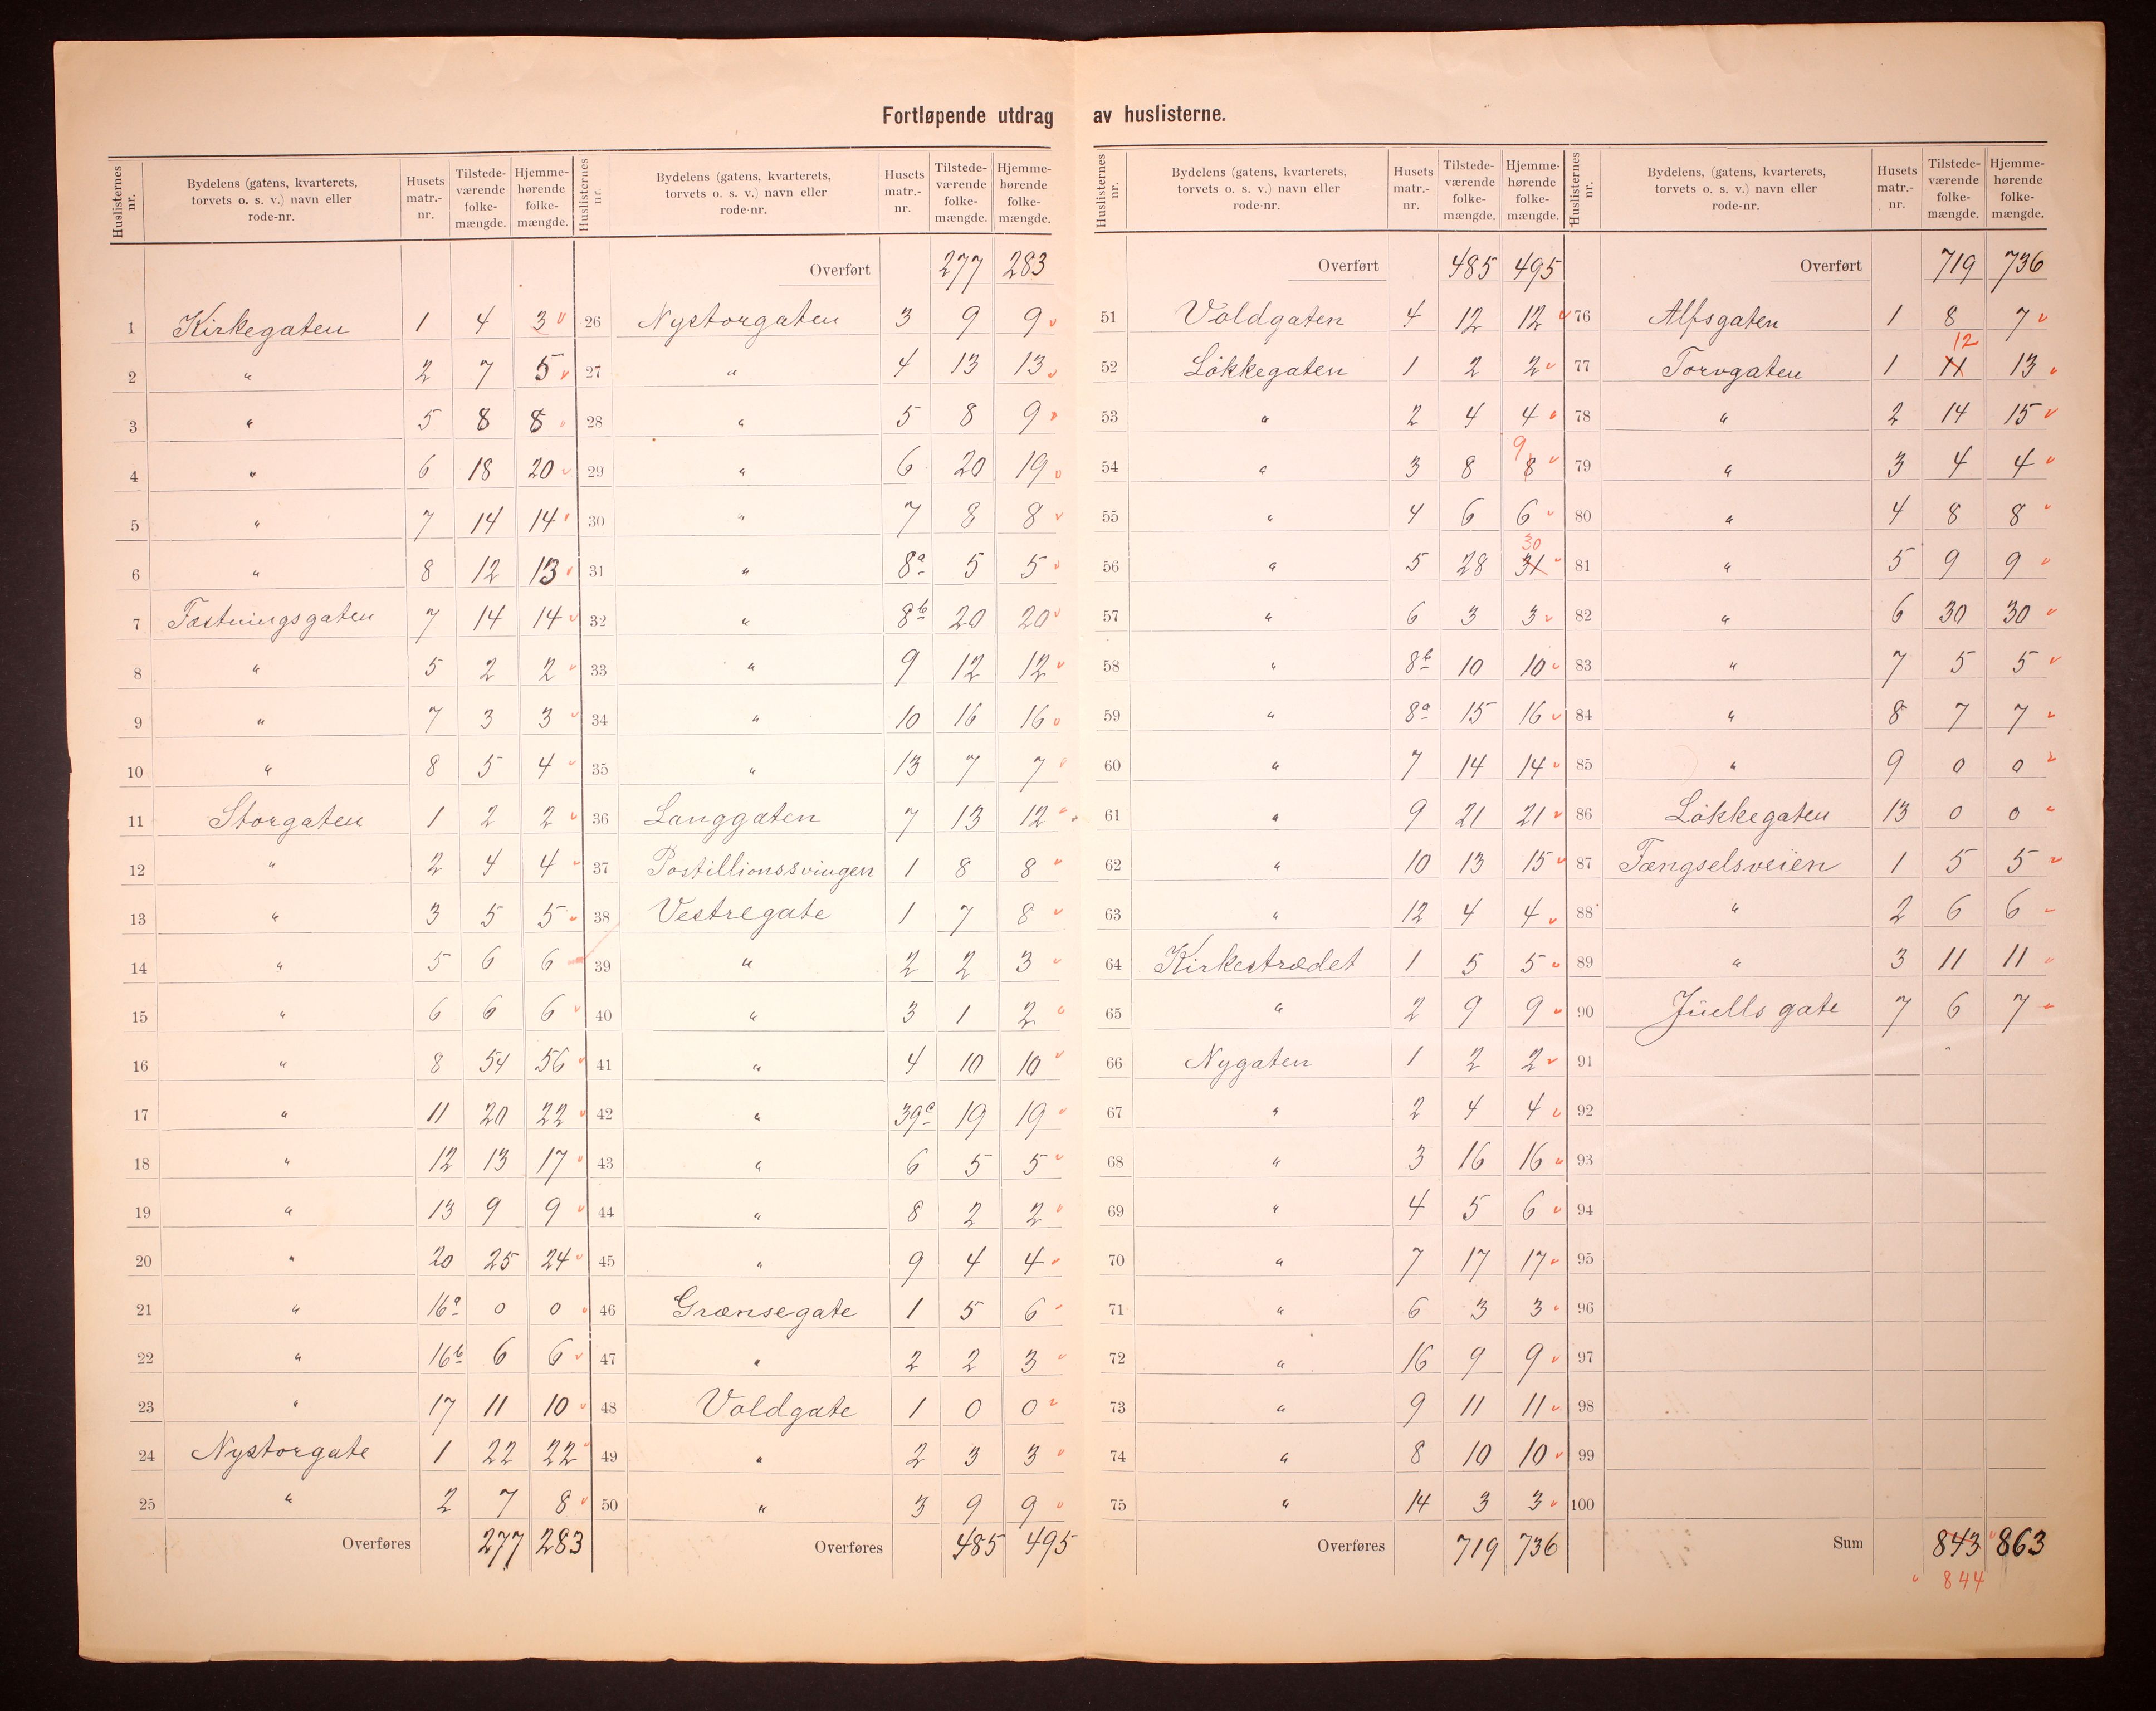 Fortløpende utdrag av huslisterne.
Huslisternes nr. | Bydelens (gatens, kvarterets, torvets o. s. v.) navn eller rode-nr. | Husets matr.-nr. | Tilstede-værende folke-mængde. | Hjemme-hørende folke-mængde.
1 Kirkegaten 1 4 3 v
2 " 2 7 5 v
3 " 5 8 8 v
4 " 6 18 20 v
5 " 7 14 14 v
6 " 8 12 13 v
7 Fæstningsgaten 7 14 14 v
8 " 5 2 2 v
9 " 7 3 3 v
10 " 8 5 4 v
11 Storgaten 1 2 2 v
12 " 2 4 4 v
13 " 3 5 5 v
14 " 5 6 6
15 " 6 6 6 v
16 " 8 54 56 v
17 " 11 20 22 v
18 " 12 13 17 v
19 " 13 9 9 v
20 " 20 25 24 v
21 " 16a 0 0 v
22 " 16b 6 6 v
23 " 17 11 10 v
24 Nystorgate 1 22 22 v
25 " 2 7 8 v
Overføres 277 283
Huslisternes nr. | Bydelens (gatens, kvarterets, torvets o. s. v.) navn eller rode-nr. | Husets matr.-nr. | Tilstede-værende folke-mængde. | Hjemme-hørende folke-mængde.
Overført 277 283
26 Nystorgaten 3 9 9 v
27 " 4 13 13 v
28 " 5 8 9 v
29 " 6 20 19 v
30 " 7 8 8 v
31 " 8a 5 5 v
32 " 8b 20 20 v
33 " 9 12 12 v
34 " 10 16 16 v
35 " 13 7 7 v
36 Langgaten 7 13 12 v
37 Postillionssvingen 1 8 8 v
38 Vestregate 1 7 8 v
39 " 2 2 3 v
40 " 3 1 2 v
41 " 4 10 10 v
42 " 39c 19 19 v
43 " 6 5 5 v
44 " 8 2 2 v
45 " 9 4 4 v
46 Grænsegate 1 5 6 v
47 " 2 2 3 v
48 Voldgate 1 0 0 v
49 " 2 3 3 v
50 " 3 9 9 v
Overføres 485 495
Huslisternes nr. | Bydelens (gatens, kvarterets, torvets o. s. v.) navn eller rode-nr. | Husets matr.-nr. | Tilstede-værende folke-mængde. | Hjemme-hørende folke-mængde.
Overført 485 495
51 Voldgaten 4 12 12 v
52 Løkkegaten 1 2 2 v
53 " 2 4 4 v
54 " 3 8 8 9 v
55 " 4 6 6 v
56 " 5 28 31 30 v
57 " 6 3 3 v
58 " 8b 10 10 v
59 " 8a 15 16 v
60 " 7 14 14 v
61 " 9 21 21 v
62 " 10 13 15 v
63 " 12 4 4 v
64 Kirkestrædet 1 5 5 v
65 " 2 9 9 v
66 Nygaten 1 2 2 v
67 " 2 4 4 v
68 " 3 16 16 v
69 " 4 5 6 v
70 " 7 17 17 v
71 " 6 3 3 v
72 " 16 9 9 v
73 " 9 11 11 v
74 " 8 10 10 v
75 " 14 3 3 v
Overføres 719 736
Huslisternes nr. | Bydelens, (gatens, kvarterets, torvets o. s. v.) navn eller rode-nr. | Husets matr.-nr. | Tilstede-værende folke-mængde. | Hjemme-hørende folke-mængde.
Overført 719 736
76 Alfsgaten 1 8 7 v
77 Torvgaten 1 11 12 13 v
78 " 2 14 15 v
79 " 3 4 4 v
80 " 4 8 8 v
81 " 5 9 9 v
82 " 6 30 30 v
83 " 7 5 5 v
84 " 8 7 7 v
85 " 9 0 0 v
86 Løkkegaten 13 0 0 v
87 Fængselsveien 1 5 5 v
88 " 2 6 6 v
89 " 3 11 11 v
90 Juells gate 7 6 7 v
91
92
93
94
95
96
97
98
99
100
Sum 843 v 863
v 844